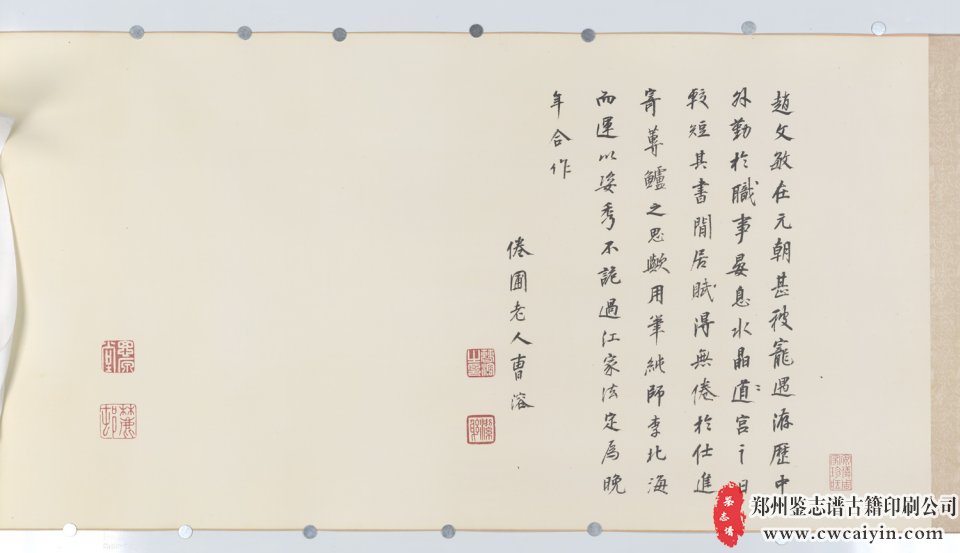 趙文敏在元朝甚被寵遇游歷中
外勤於職事晏息水晶道宮之日
較短其書閒居賦得無倦於仕進
寄蓴鱸之思歟用筆純師李北海
而運以姿秀不詭過江家法定爲晚
年合作
倦圃老人曹溶
郑州鉴志谱古籍印刷公司
www.cwcaiyin.com